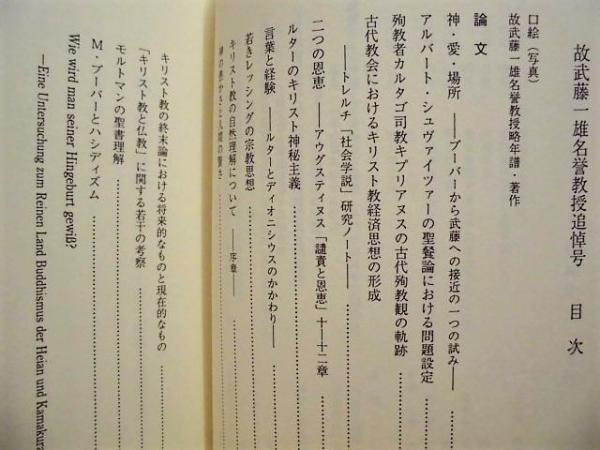 故武藤一雄名誉教授追悼号　目次
口絵（写真）
故武藤一雄名誉教授略年譜・著作
論文
神・愛・場所　――ブーバーから武藤への接近の一つの試み――
アルバート・シュヴァイツァーの聖餐論における問題設定
殉教者カルタゴ司教キプリアヌスの古代殉教観の軌跡
古代教会におけるキリスト教経済思想の形成
――トレルチ「社会学説」研究ノート――
二つの恩恵　――アウグスティヌス「譴責と恩恵」十―十二章
ルターのキリスト神秘主義
言葉と経験　――ルターとディオニシウスのかかわり――
若きレッシングの宗教思想
キリスト教の自然理解について　――序章――
キリスト教の終末論における将来的なものと現在的なもの
「キリスト教と仏教」に関する若干の考察
モルトマンの聖書理解
M・ブーバーとハシディズム
Wie wird man seiner Hingeburt gewiß?
—Eine Untersuchung zum Reinen Land Buddhismus der Heian und Kamakura